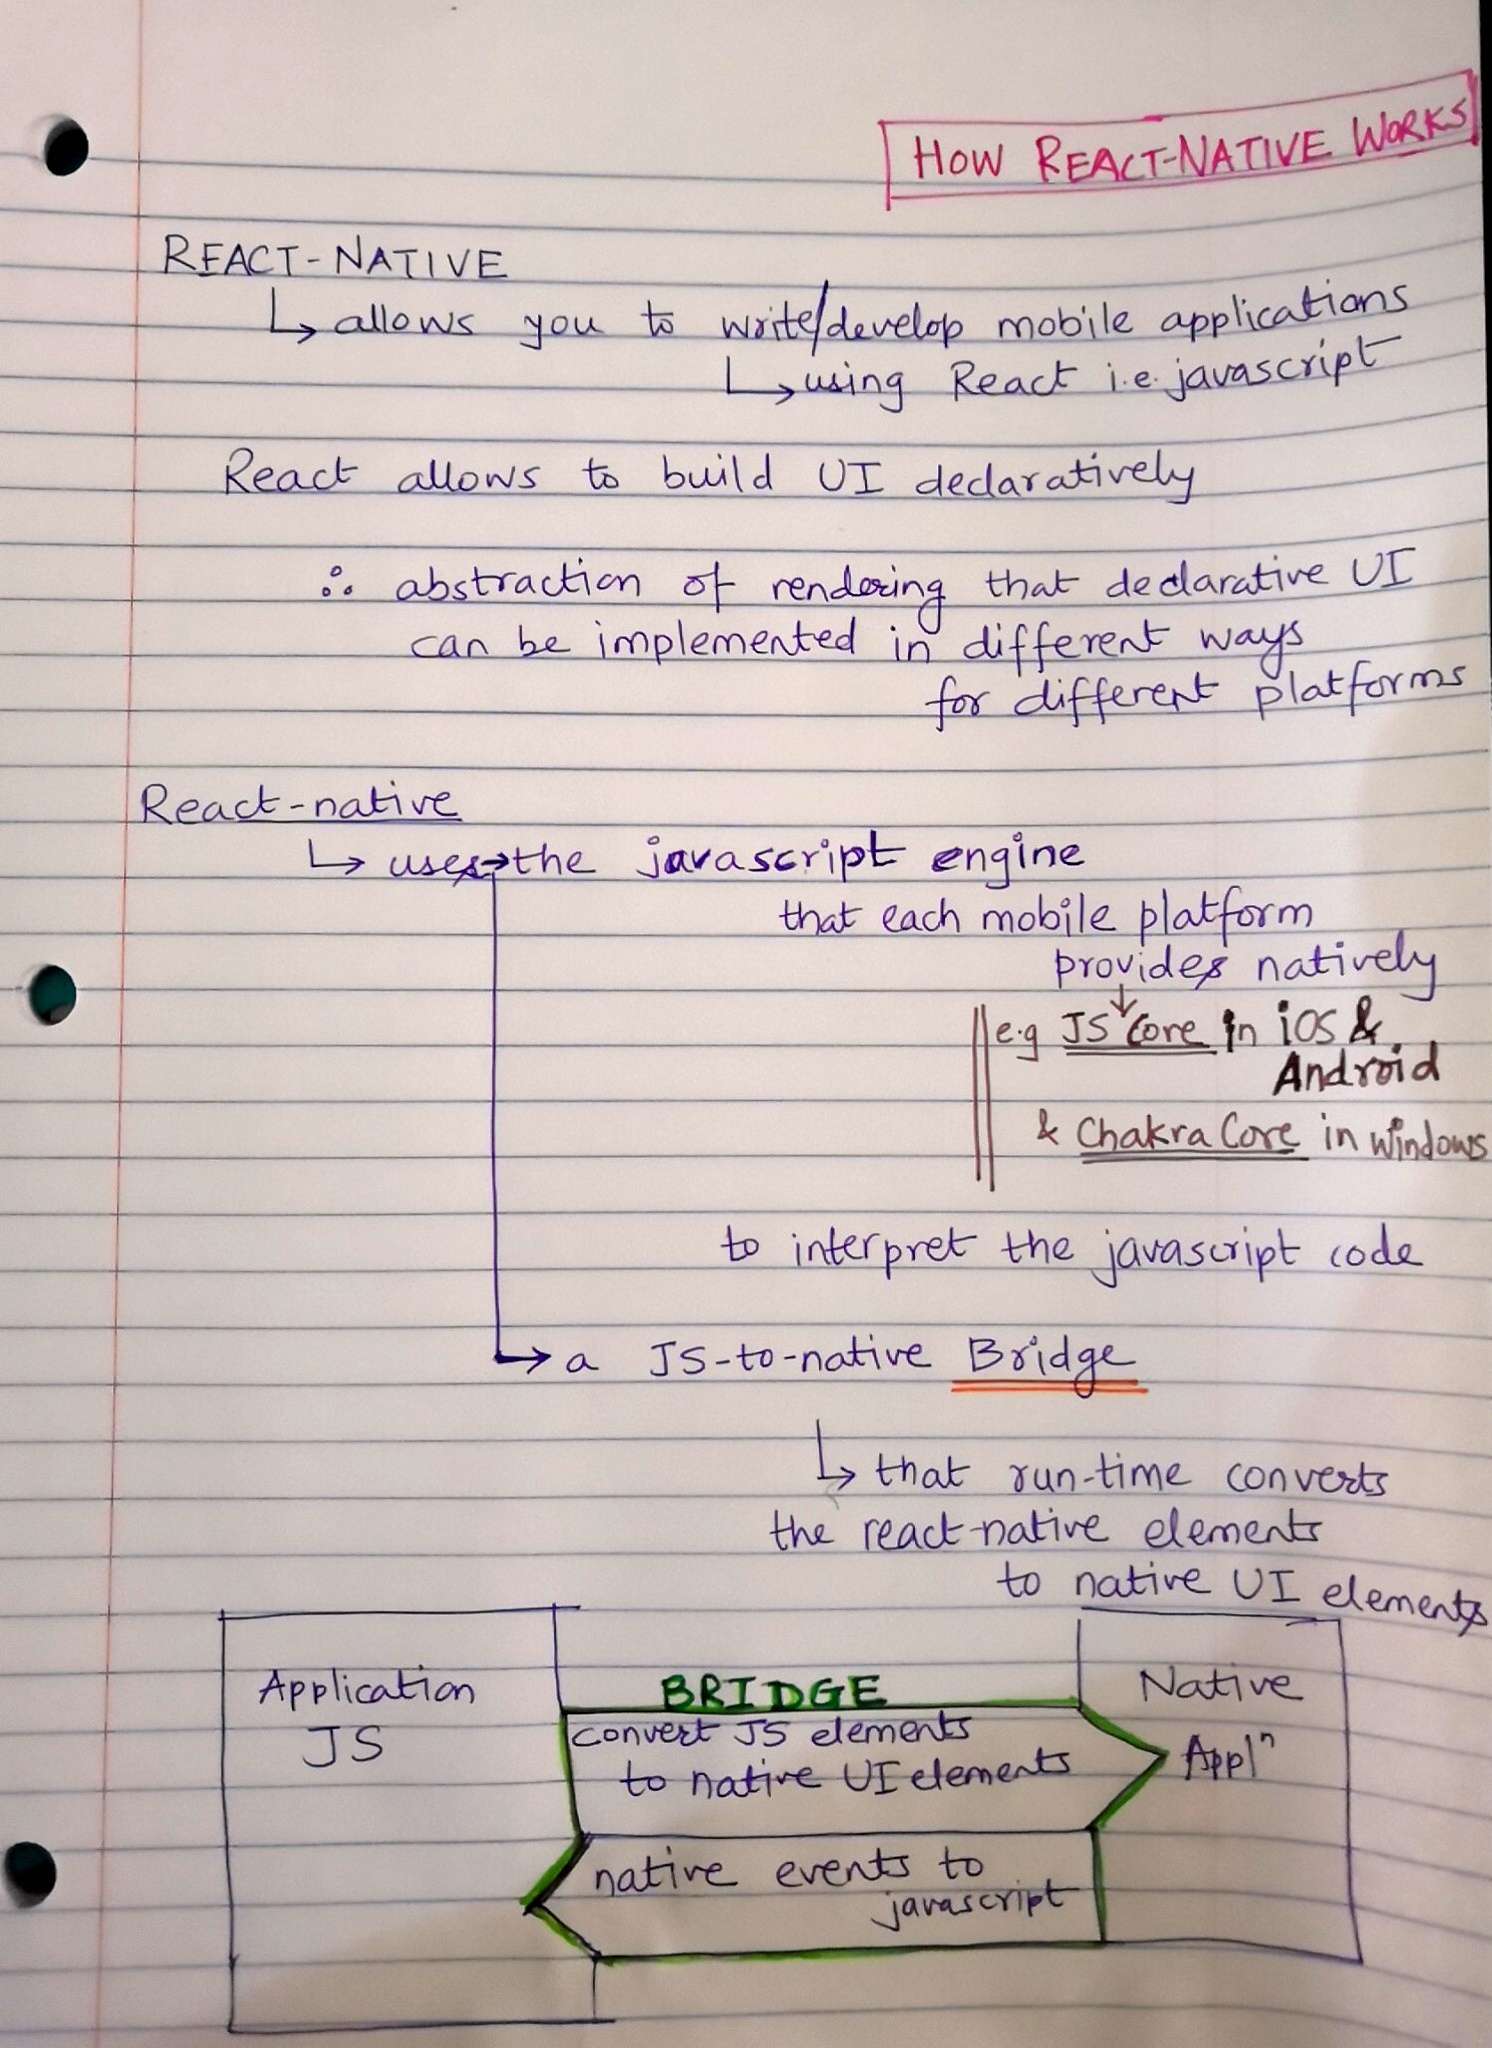 HOW REACT-NATIVE WORKS
REACT-NATIVE
↳ allows you to write/develop mobile applications
↳ using React i.e. javascript
React allows to build UI declaratively
∴ abstraction of rendering that declarative UI
can be implemented in different ways
for different platforms
React-native
↳ uses → the javascript engine
that each mobile platform
provides natively
e.g JS Core in iOS &
Android
& Chakra Core in windows
to interpret the javascript code
→ a JS-to-native Bridge
↳ that run-time converts
the react-native elements
to native UI elements
Application
JS
BRIDGE
convert JS elements
to native UI elements
native events to
javascript
Native
Applⁿ